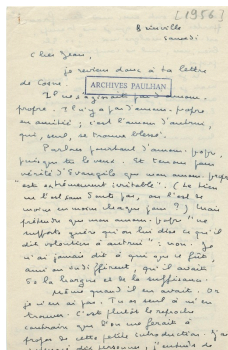 [1956]
Brinville
samedi
Cher Jean,
je reviens donc à ta lettre
de
ARCHIVES PAULHAN
Il ne s'agissait pas d'amour-
propre. Il n'y a pas d'amour-propre
en amitié ; c'est l'amour d'autrui,
qui, seul, se trouve blessé.
Parlons pourtant d'amour-propre,
puisque tu le veux. Et tenons pour
vérité d'Evangile que mon amour-propre
"est extrêmement irritable". (Le tien
ne l'est sans doute pas, ou l'est de
moins en moins chaque jour ?) Mais
prétendre que mon amour-propre "ne
supporte guère qu'on lui dise ce qu'il
dit volontiers à autrui" : non. Je
n'ai jamais dit à qui que ce fût,
ami ou indifférent, qu'il avait
de la hargne et de la suffisance.
Même quand il en avait. Or
je n'en ai pas. Tu es seul à m'en
trouver. C'est plutôt le reproche
contraire que l'on me ferait à
propos de cette petite introduction. J'ai